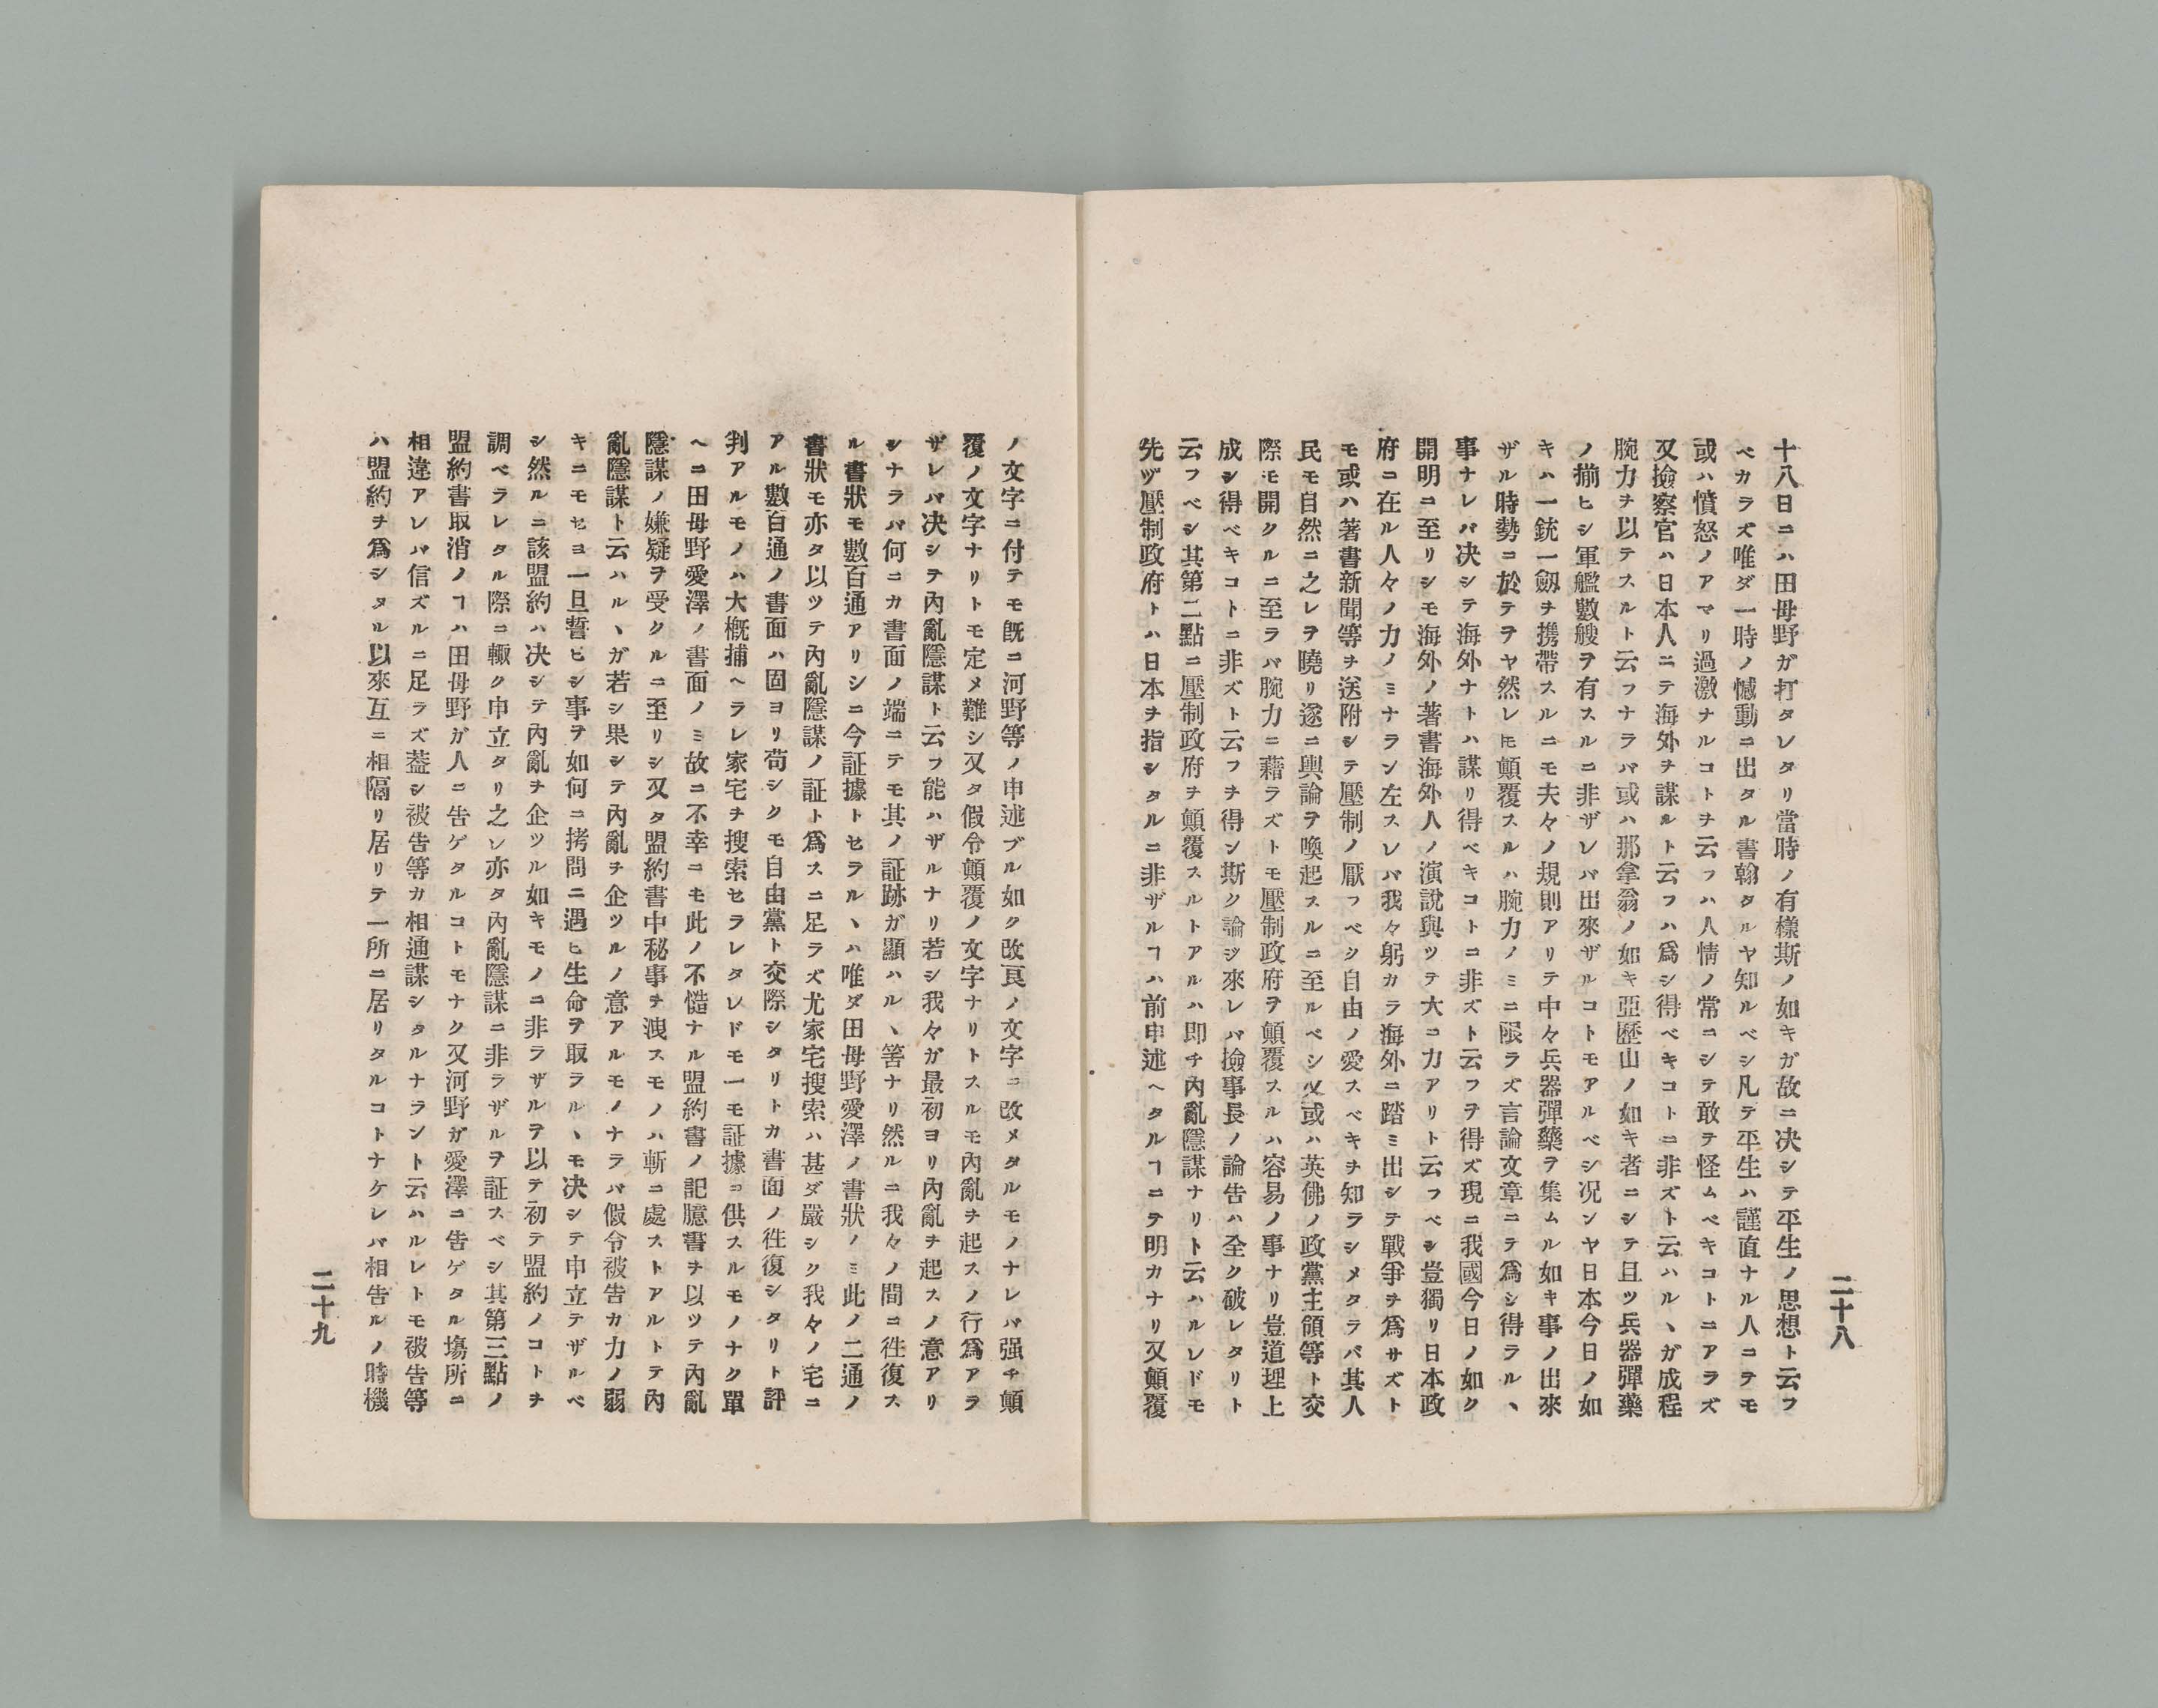 十八日ニハ田母野ガ打タレタリ當時ノ有樣斯ノ如キガ故ニ决シテ平生ノ思想ト云フ
ベカラズ唯ダ一時ノ憾動ニ出タル書翰タルヤ知ルベシ凡テ平生ハ謹直ナル人ニテモ
或ハ憤怒ノアマリ過激ナルコトヲ云フハ人情ノ常ニシテ敢テ怪ムベキコトニアラズ
又撿察官ハ日本人ニテ海外ヲ謀ルト云フハ爲シ得ベキコトニ非ズト云ハルヽガ成程
腕力ヲ以テスルト云フナラバ或ハ那拿翁ノ如キ亞歷山ノ如キ者ニシテ且ツ兵器彈藥
ノ揃ヒシ軍艦數艘ヲ有スルニ非ザレバ出來ザルコトモアルベシ况ンヤ日本今日ノ如
キハ一銃一劔ヲ携帶スルニモ夫々ノ規則アリテ中々兵器彈藥ヲ集ムル如キ事ノ出來
ザル時勢ニ於テヲヤ然レ𪜈顛覆スルハ腕力ノミニ限ラズ言論文章ニテ爲シ得ラルヽ
事ナレバ决シテ海外ナトハ謀リ得ベキコトニ非ズト云フヲ得ズ現ニ我國今日ノ如ク
開明ニ至リシモ海外ノ著書海外人ノ演說與ツテ大ニ力アリト云フベシ豈獨リ日本政
府ニ在ル人々ノ力ノミナラン左スレバ我々躬カラ海外ニ踏ミ出シテ戰爭ヲ爲サズト
モ或ハ著書新聞等ヲ送附シテ壓制ノ厭フベク自由ノ愛スベキヲ知ラシメタラバ其人
民モ自然ニ之レヲ曉リ遂ニ輿論ヲ喚起スルニ至ルベシ又或ハ英佛ノ政黨主領等ト交
際モ開クルニ至ラバ腕力ニ藉ラズトモ壓制政府ヲ顛覆スルハ容易ノ事ナリ豈道理上
成シ得ベキコトニ非ズト云フヲ得ン斯ク論ジ來レバ撿事長ノ論告ハ全ク破レタリト
云フベシ其第二點ニ壓制政府ヲ顛覆スルトアルハ即チ內亂隱謀ナリト云ハルレドモ
先ヅ壓制政府トハ日本ヲ指シタルニ非ザルヿハ前申述ヘタルヿニテ明カナリ又顛覆
二十八
ノ文字ニ付テモ既ニ河野等ノ申述ブル如ク改良ノ文字ニ改メタルモノナレバ强チ顛
覆ノ文字ナリトモ定メ難シ又タ假令顛覆ノ文字ナリトスルモ內亂ヲ起スノ行爲アラ
ザレバ决シテ內亂隱謀ト云フ能ハザルナリ若シ我々ガ最初ヨリ內亂ヲ起スノ意アリ
シナラバ何ニカ書面ノ端ニテモ其ノ証跡ガ顯ハルヽ筈ナリ然ルニ我々ノ間ニ徃復ス
ル書狀モ數百通アリシニ今証據トセラルヽハ唯ダ田母野愛澤ノ書狀ノミ此ノ二通ノ
書狀モ亦タ以ツテ內亂隱謀ノ証ト爲スニ足ラズ尤家宅搜索ハ甚ダ嚴シク我々ノ宅ニ
アル數百通ノ書面ハ固ヨリ苟シクモ自由黨ト交際シタリトカ書面ノ徃復シタリト評
判アルモノハ大槪捕ヘラレ家宅ヲ搜索セラレタレドモ一モ証據ニ供スルモノナク單
ヘニ田母野愛澤ノ書面ノミ故ニ不幸ニモ此ノ不愷ナル盟約書ノ記臆書ヲ以ツテ內亂
隱謀ノ嫌疑ヲ受クルニ至リシ又タ盟約書中秘事ヲ洩スモノハ斬ニ處ストアルトテ內
亂隱謀ト云ハルヽガ若シ果シテ內亂ヲ企ツルノ意アルモノナラバ假令被告カ力ノ弱
キニモセヨ一旦誓ヒシ事ヲ如何ニ拷問ニ遇ヒ生命ヲ取ラルヽモ决シテ申立テザルベ
シ然ルニ該盟約ハ决シテ內亂ヲ企ツル如キモノニ非ラザルヲ以テ初テ盟約ノコトヲ
調ベラレタル際ニ輙ク申立タリ之レ亦タ內亂隱謀ニ非ラザルヲ証スベシ其第三點ノ
盟約書取消ノヿハ田母野ガ人ニ告ゲタルコトモナク又河野ガ愛澤ニ告ゲタル塲所ニ
相違アレバ信ズルニ足ラズ葢シ被告等カ相通謀シタルナラント云ハルレトモ被告等
ハ盟約ヲ爲シタル以來互ニ相隔リ居リテ一所ニ居リタルコトナケレバ相告ルノ時機
二十九